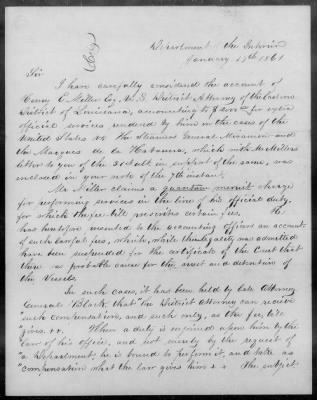 Copy
Department of the Interior
January 17th 1861
Sir
I have carefully considered the account of
Henry C. Miller Esq. U.S. District Attorney of the Eastern
District of Louisiana, amounting to for extra
official services rendered by him in the cases of the
United States vs the Steamers General Miramon and
the Marques de la Habana, which with Mr Millers
letter to you of the 30th ult in support of the same, was
inclosed in your note of the 7th instant.
Mr Miller claims a quantum meruit charge
for performing services in the line of his official duty,
for which the fee bill prescribes certain fees. He
has heretofore presented to the accounting officers an account
of such lawful fees, which, while the legality was admitted
have been suspended for the certificate of the Court that
there was probable cause for the arrest and detention of
the Vessels.
In such cases, it has been held by late Attorney
General Black, that the District Attorney can receive
"such compensation, and such only, as the fee, bill
"gives. ++. When a duty is enjoined upon him by the
"law of his office, and not merely by the request of
"a Department, he is bound to perform it, and take as
"compensation what the law gives him ++ The subject